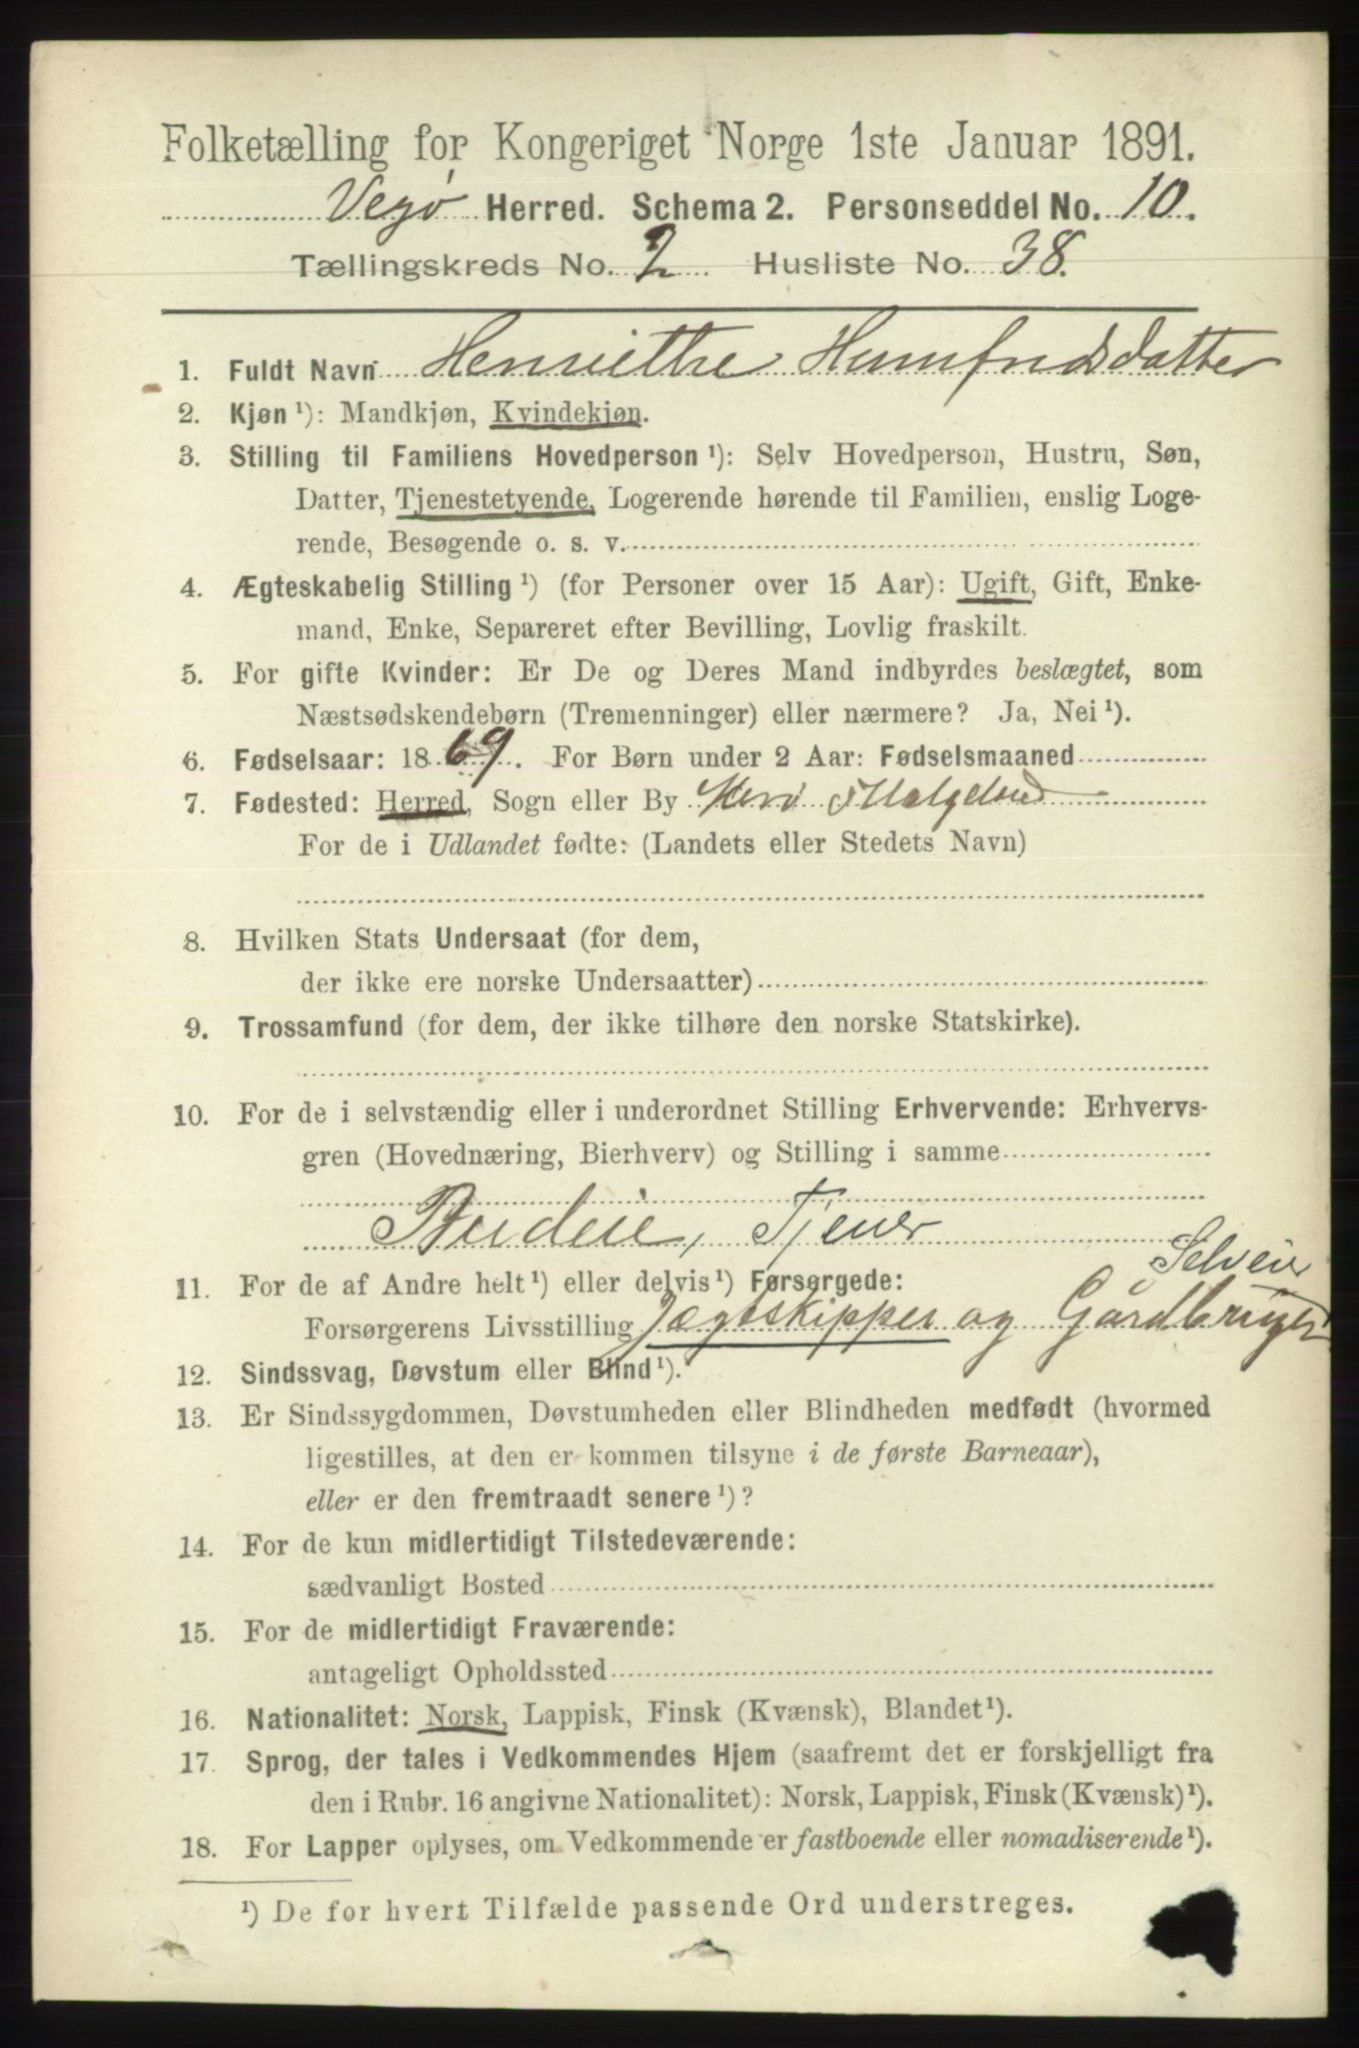 Folketælling for Kongeriget Norge 1ste Januar 1891.
Vegø Herred. Schema 2. Personseddel No. 10.
Tællingskreds No. 2 Husliste No. 38.
1. Fuldt Navn Henriethe Humfridsdatter
2. Kjøn ¹): Mandkjøn, Kvindekjøn.
3. Stilling til Familiens Hovedperson ¹): Selv Hovedperson, Hustru, Søn,
Datter, Tjenestetyende, Logerende hørende til Familien, enslig Loge-
rende, Besøgende o. s. v.
4. Ægteskabelig Stilling ¹) (for Personer over 15 Aar): Ugift, Gift, Enke-
mand, Enke, Separeret efter Bevilling, Lovlig fraskilt.
5. For gifte Kvinder: Er De og Deres Mand indbyrdes beslægtet, som
Næstsødskendebørn (Tremenninger) eller nærmere? Ja, Nei ¹).
6. Fødselsaar: 1869. For Børn under 2 Aar: Fødselsmaaned
7. Fødested: Herred, Sogn eller By Herø i Helgeland
For de i Udlandet fødte: (Landets eller Stedets Navn)
8. Hvilken Stats Undersaat (for dem,
der ikke ere norske Undersaatter)
9. Trossamfund (for dem, der ikke tilhøre den norske Statskirke).
10. For de i selvstændig eller i underordnet Stilling Erhvervende: Erhvervs-
gren (Hovednæring, Bierhverv) og Stilling i samme
Budeie, Tjener
Selveier
11. For de af Andre helt ¹) eller delvis ¹) Forsørgede:
Forsørgerens Livsstilling Jægtskipper og Gårdbruger
12. Sindssvag, Døvstum eller Blind ¹).
13. Er Sindssygdommen, Døvstumheden eller Blindheden medfødt (hvormed
ligestilles, at den er kommen tilsyne i de første Barneaar),
eller er den fremtraadt senere ¹)?
14. For de kun midlertidigt Tilstedeværende:
sædvanligt Bosted
15. For de midlertidigt Fraværende:
antageligt Opholdssted
16. Nationalitet: Norsk, Lappisk, Finsk (Kvænsk), Blandet ¹).
17. Sprog, der tales i Vedkommendes Hjem (saafremt det er forskjelligt fra
den i Rubr. 16 angivne Nationalitet): Norsk, Lappisk, Finsk (Kvænsk) ¹).
18. For Lapper oplyses, om Vedkommende er fastboende eller nomadiserende ¹).
¹) De for hvert Tilfælde passende Ord understreges.